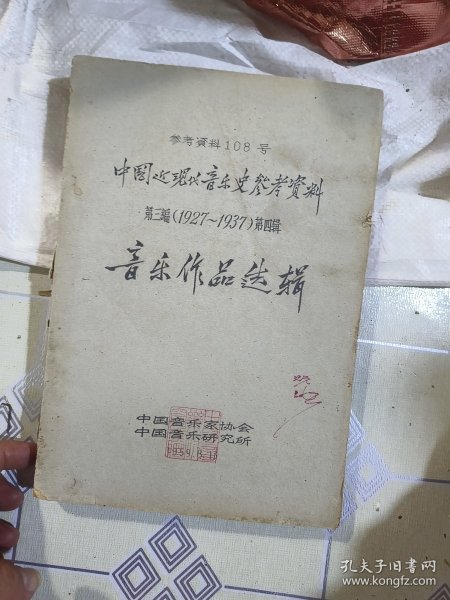 参考資料108号
中国近現代音乐史參考資料
第三編(1927~1937)第四辑
音乐作品选辑
中国音乐家协会
中国音乐研究所
孔夫子旧书网
www.kongfz.com